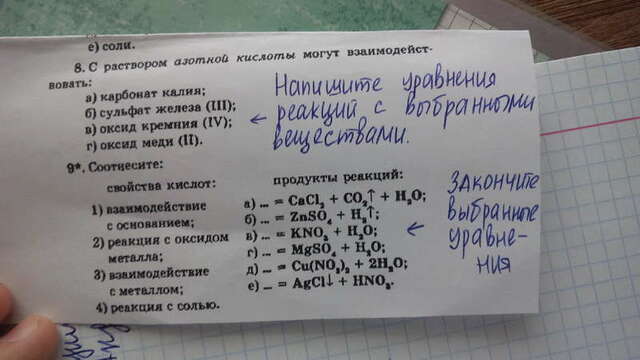 е) соли.
8. С раствором азотной кислоты могут взаимодейст-
вовать:
а) карбонат калия;
б) сульфат железа (III);
в) оксид кремния (IV);
г) оксид меди (II).
Напишите уравнения
← реакций с выбранными
веществами.
9*. Соотнесите:
свойства кислот:
1) взаимодействие
с основанием;
2) реакция с оксидом
металла;
3) взаимодействие
с металлом;
4) реакция с солью.
продукты реакций:
а) ... = CaCl₂ + CO₂↑ + H₂O;
б) ... = ZnSO₄ + H₂↑;
в) ... = KNO₃ + H₂O;
г) ... = MgSO₄ + H₂O;
д) ... = Cu(NO₃)₂ + 2H₂O;
е) ... = AgCl↓ + HNO₃.
Закончите
выбранные
← уравне-
ния